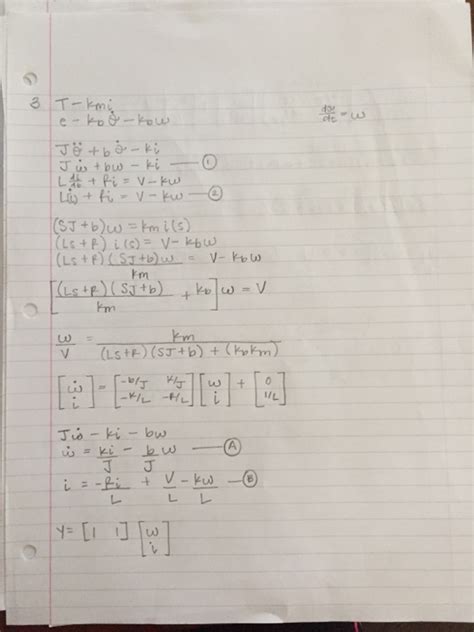 3 T - kmi
e - kbθ̇ - kbw
dω/dt = ω
Jθ̈ + bθ̇ - ki
Jω̇ + bω - ki — ①
L di/dt + Ri = V - kω
Lω̇ + Ri = V - kω — ②
(SJ + b)ω = km i(s)
(Ls + R) i(s) = V - kbω
(Ls + R) (SJ + b)ω / km = V - kbω
[(Ls + R)(SJ + b) / km + kb] ω = V
ω/V = km / (Ls + R)(SJ + b) + (kbkm)
[ω̇ i] = [-b/J k/J -k/L -R/L] [ω i] + [0 1/L]
Jω̇ - ki - bω
ω̇ = ki/J - b/J ω — Ⓐ
i = -Ri/L + V/L - kω/L — Ⓑ
Y = [1 1] [ω i]